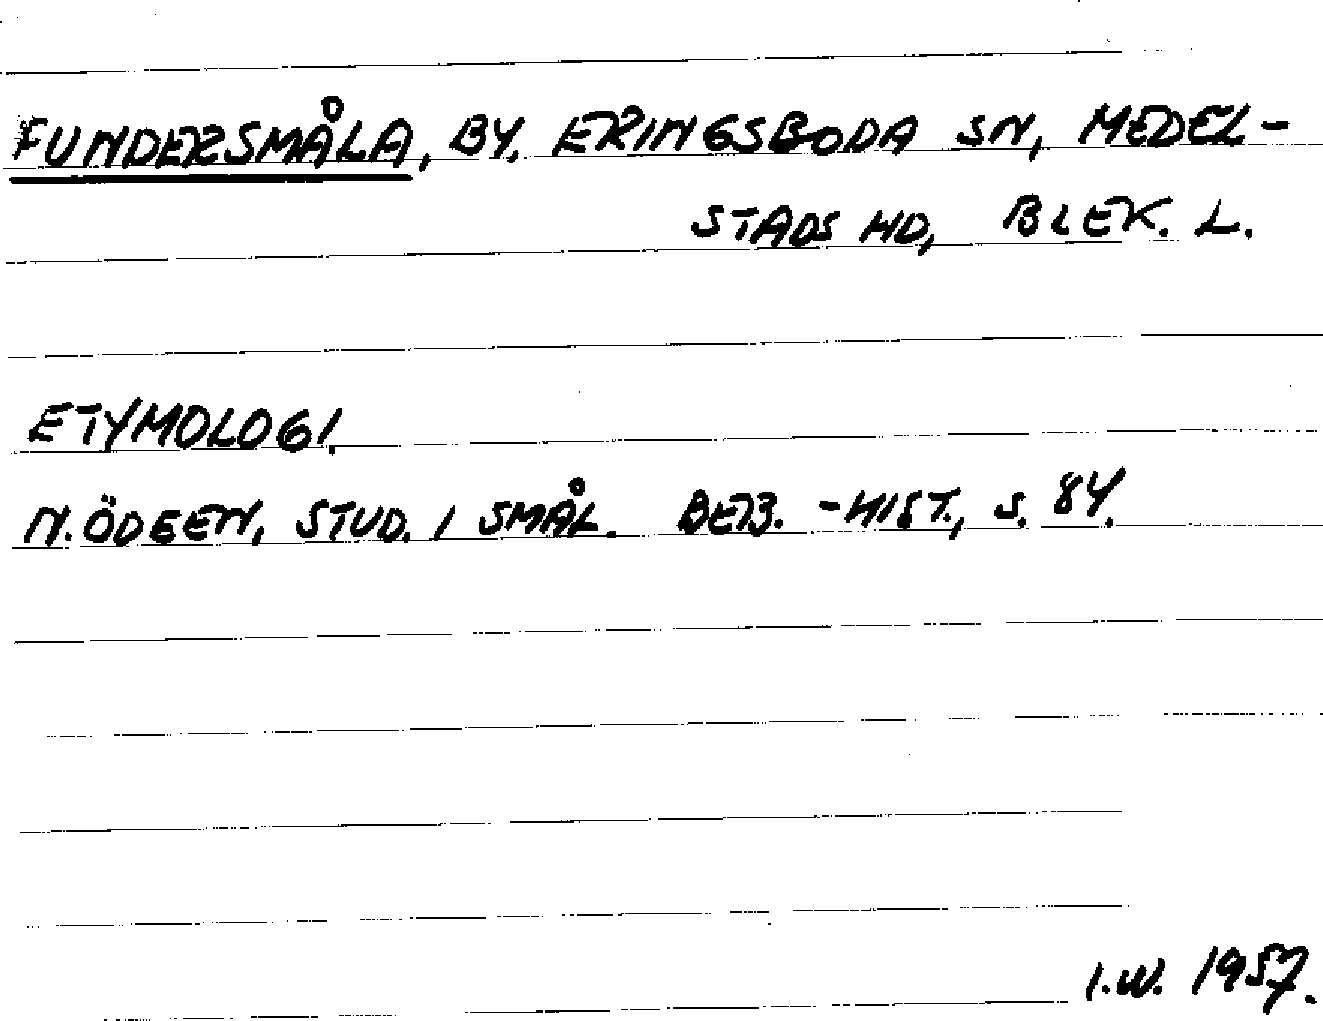 FUNDERSMÅLA, BY. ERINGSBODA SN, MEDEL-
STADS HD, BLEK. L.
ETYMOLOGI.
N. ÖDEEN, STUD. I SMÅL. BEB. -HIST., S. 84.
I.W. 1957.